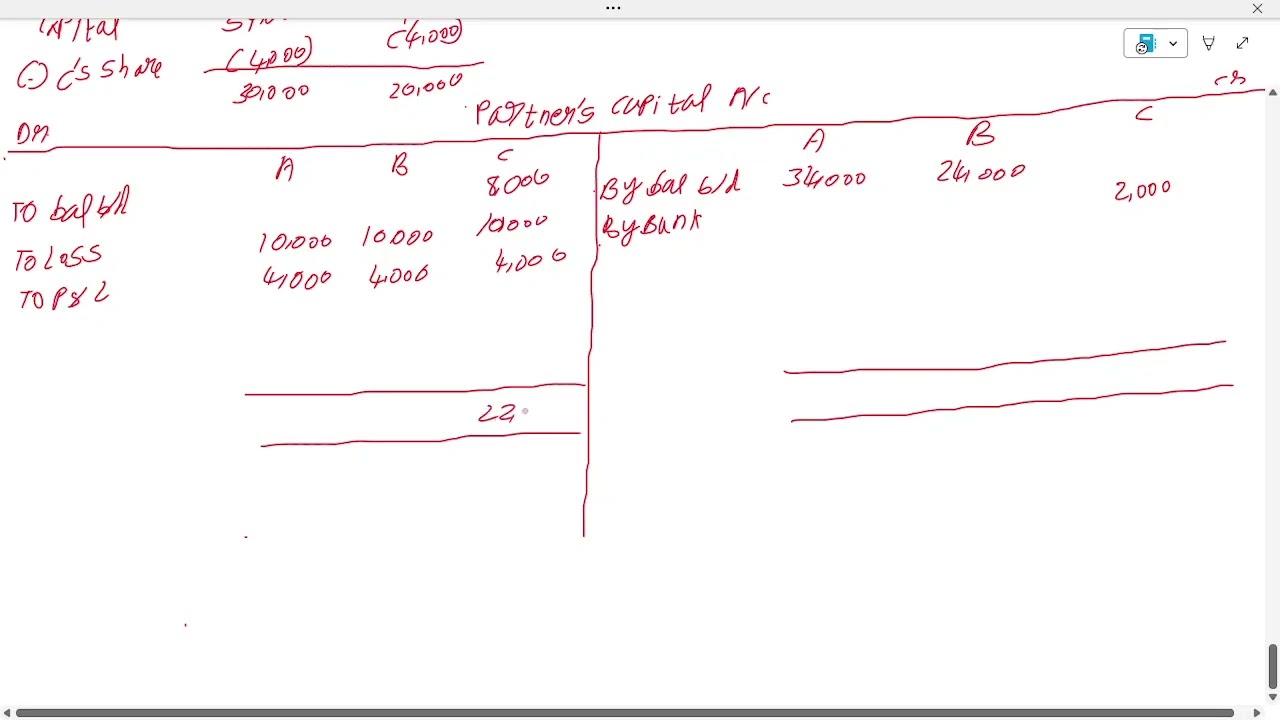 Capital
(4,000) (4,000)
(-) C's Share 30,000 20,000
Partner's Capital A/c
Dr Cr
A B C A B C
To bal b/d 8000 By bal b/d 34,000 24,000
To Loss 10,000 10,000 10,000 By Bank 2,000
To P&L 4,000 4,000 4,000
22,